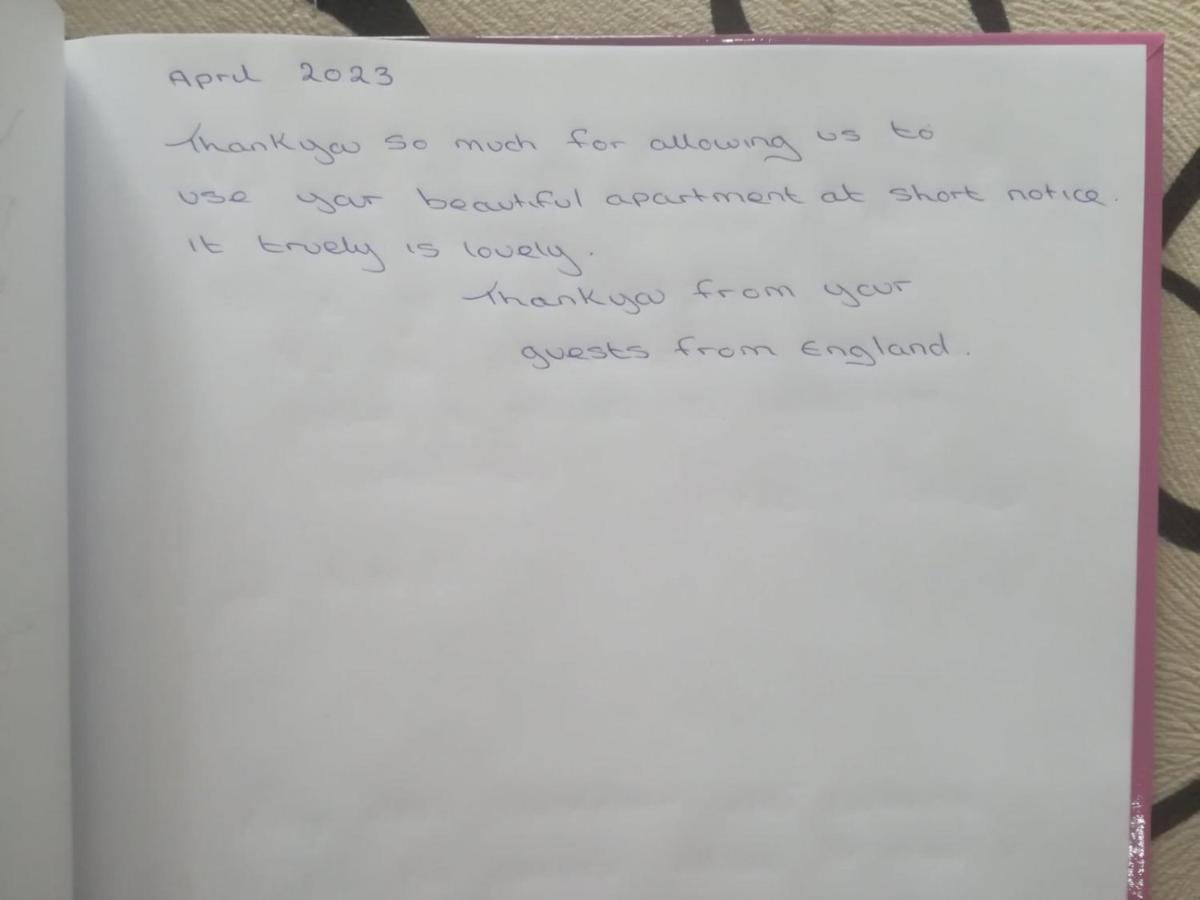 April 2023
Thankyou so much for allowing us to
use your beautiful apartment at short notice.
it truely is lovely.
Thankyou from your
guests from England.